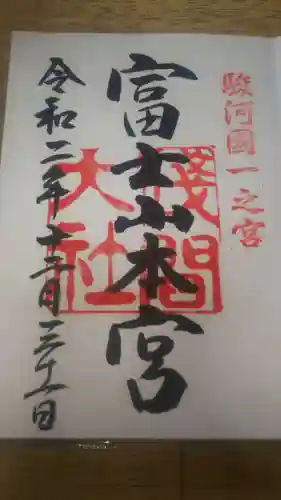 駿河國一之宮
富士山本宮
淺間
大社
令和二年十二月三十一日